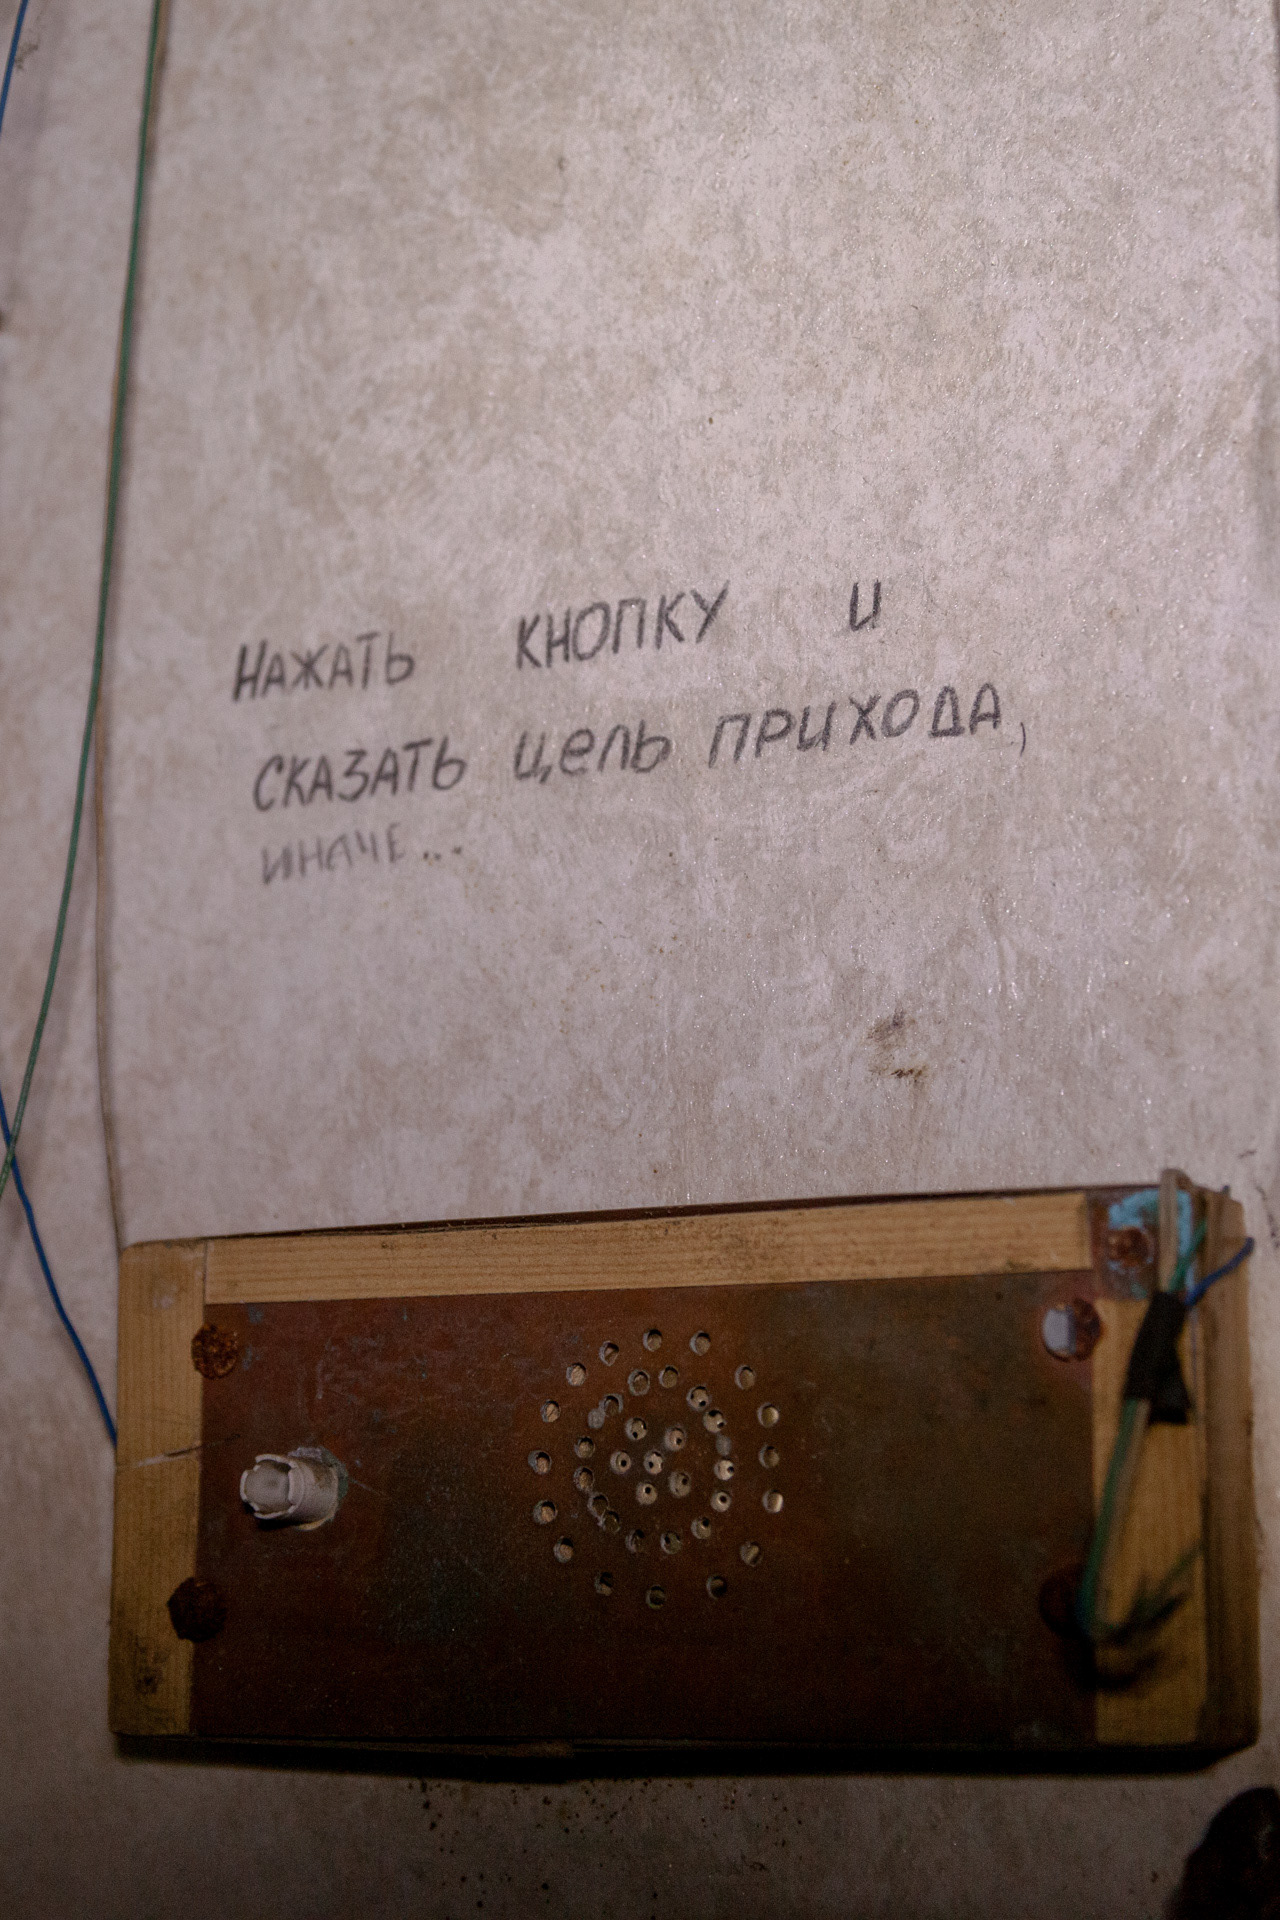 НАЖАТЬ КНОПКУ И
СКАЗАТЬ ЦЕЛЬ ПРИХОДА,
ИНАЧЕ...